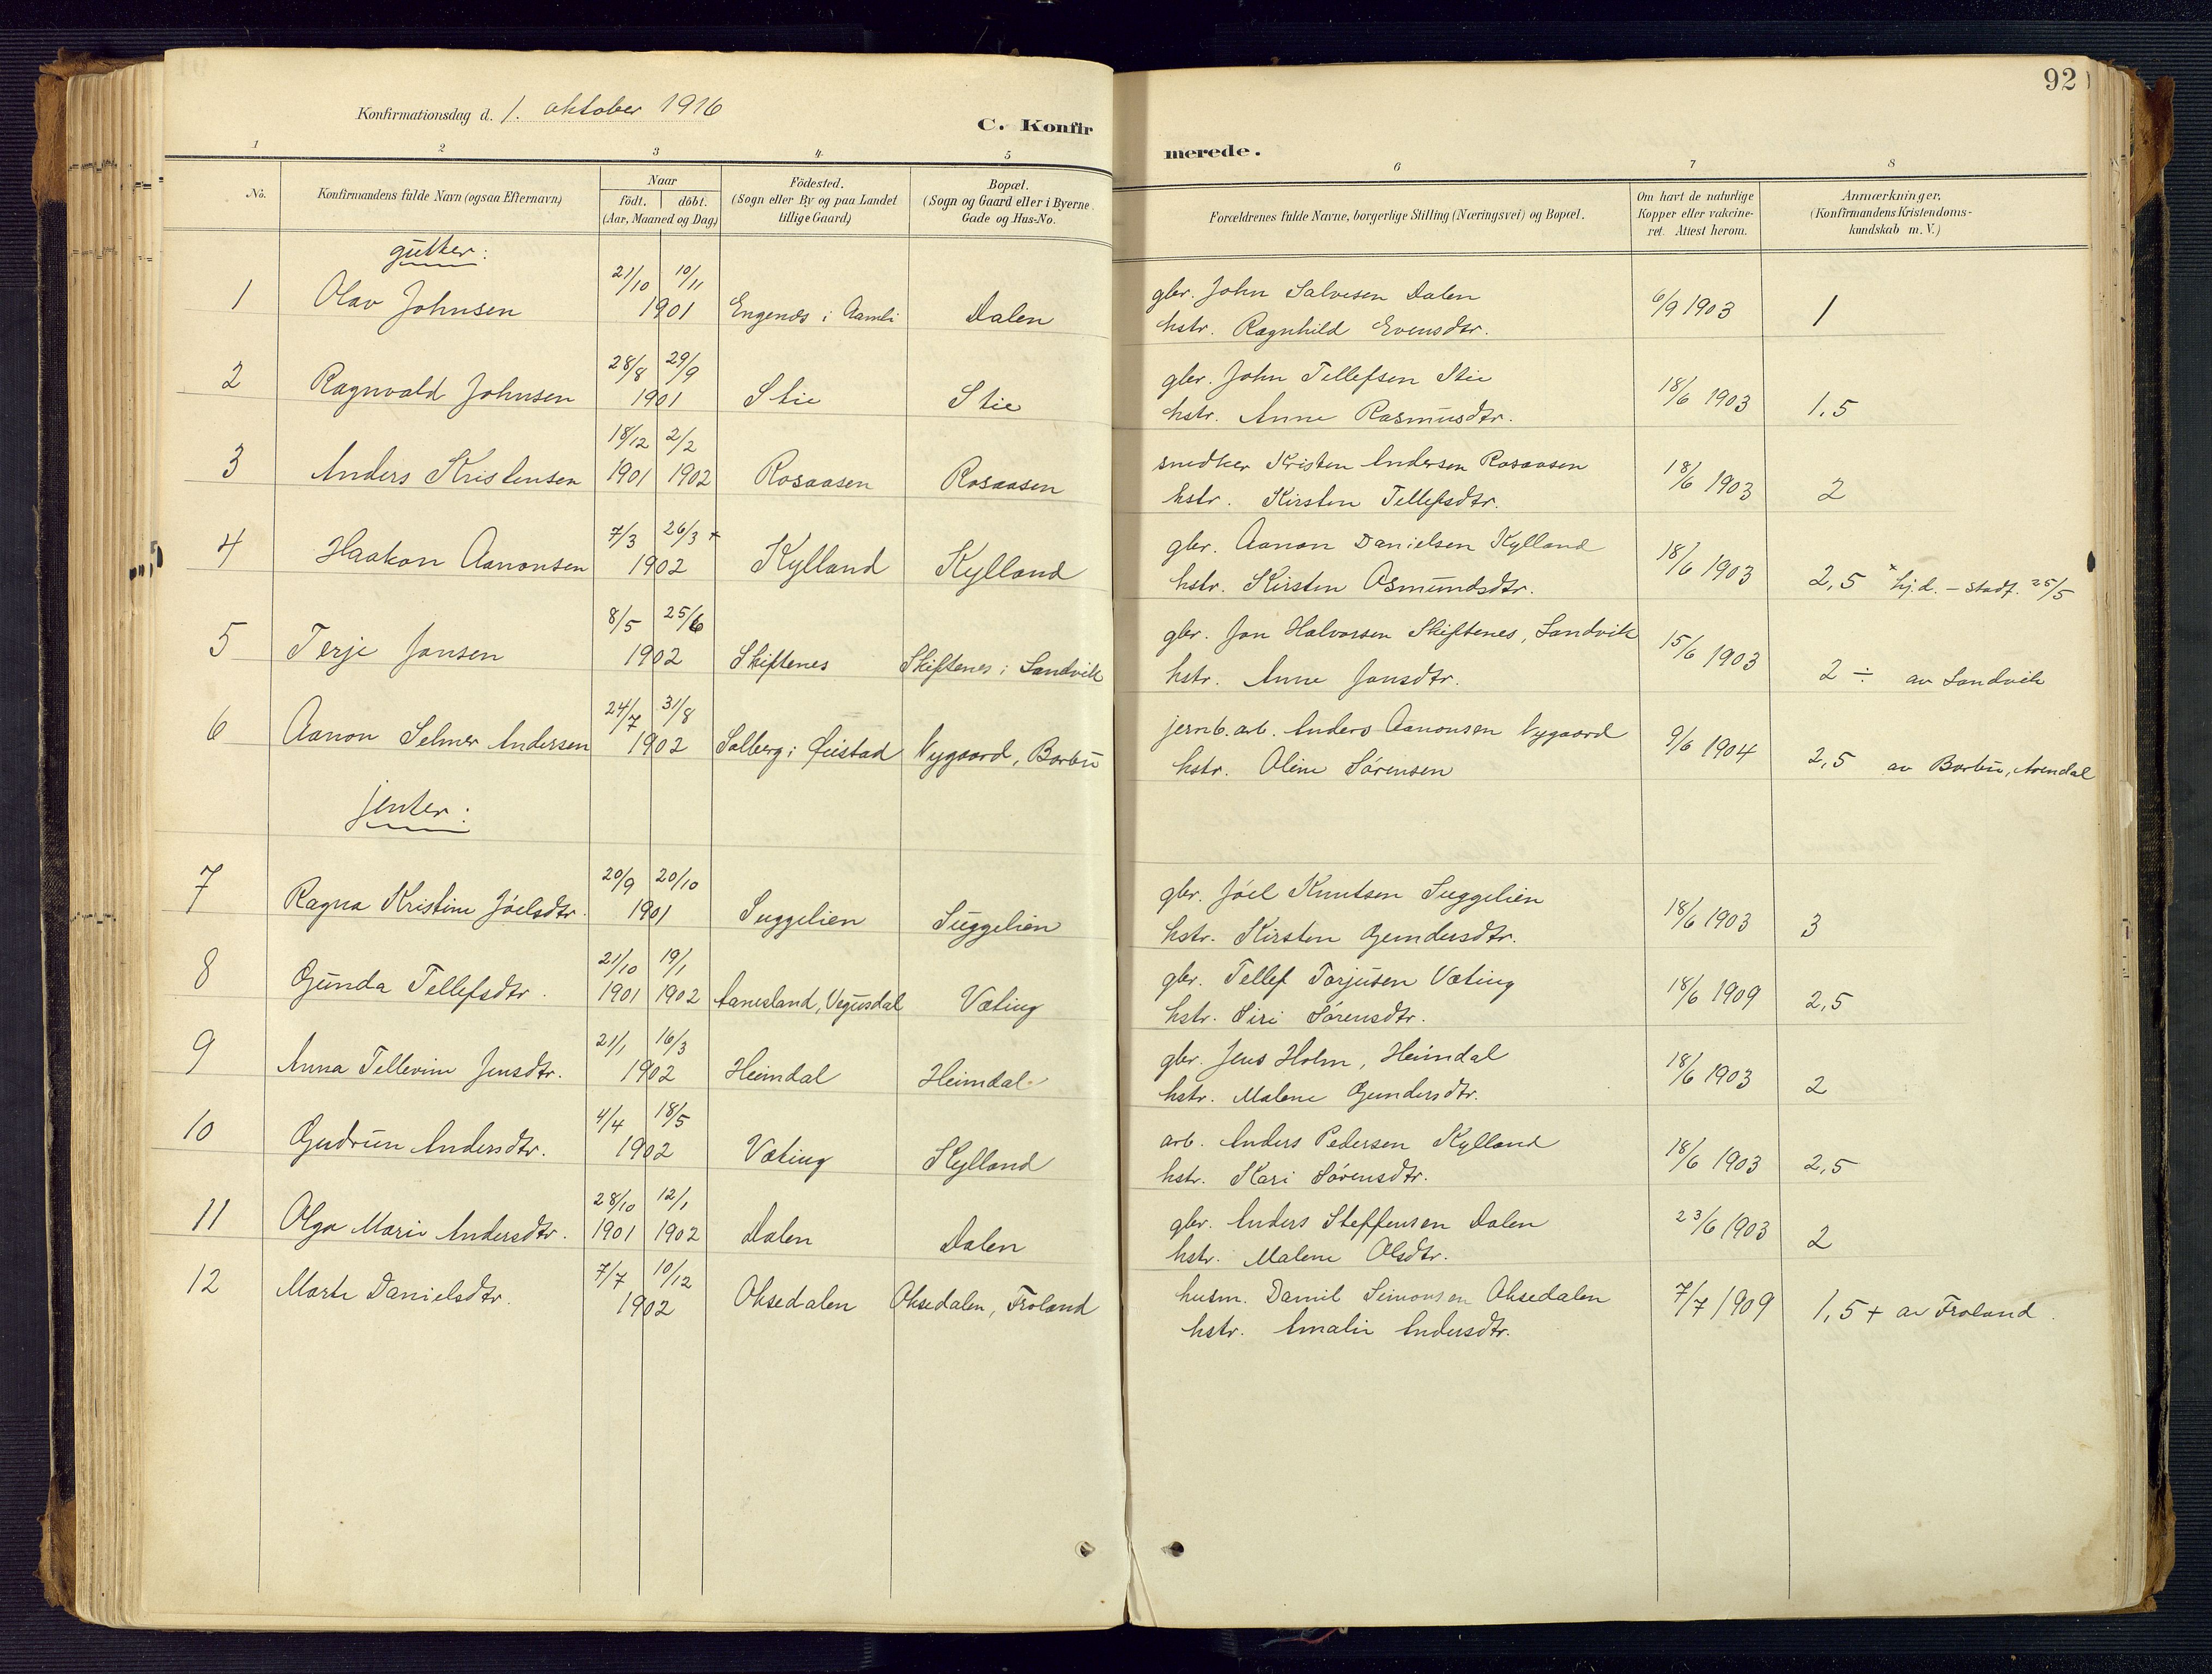 92
Konfirmationsdag d. 1. oktober 1916
C. Konfirmerede.
1 2 3 4 5 6 7 8
No. Konfirmandens fulde Navn (ogsaa Efternavn)
Naar
födt. döbt.
(Aar, Maaned og Dag)
Födested.
(Sogn eller By og paa Landet
tillige Gaard)
Bopæl.
(Sogn og Gaard eller i Byerne
Gade og Hus-No.
Forældrenes fulde Navne, borgerlige Stilling (Næringsvei) og Bopæl.
Om havt de naturlige
Kopper eller vakcine-
ret. Attest herom.
Anmærkninger.
(Konfirmandens Kristendoms-
kundskab m. V.)
gutter:
1 Olav Johnsen 21/10 10/11 1901 Engenes i Aamli Dalen gbr. John Salvesen Dalen 6/9 1903 1
hstr. Ragnhild Evensdtr.
2 Ragnvald Johnsen 28/8 29/9 1901 Stie Stie gbr. John Tellefsen Stie 18/6 1903 1,5
hstr. Anne Rasmusdtr.
3 Anders Kristensen 18/12 1901 2/2 1902 Rosaasen Rosaasen snedker Kristen Andersen Rosaasen 18/6 1903 2
hstr. Kirsten Tellefsdtr.
4 Haakon Aanonsen 7/3 26/3 + 1902 Kylland Kylland gbr. Aanon Danielsen Kylland 18/6 1903 2,5 + hj.d. – stadf. 25/5
hstr. Kirsten Osmundsdtr.
5 Terje Jonsen 8/5 25/6 1902 Skiftenes Skiftenes i Landvik gbr. Jon Halvorsen Skiftenes, Landvik 15/6 1903 2 ÷ av Landvik
hstr. Anne Jonsdtr.
6 Aanon Selmer Andersen 24/7 31/8 1902 Solberg i Øiestad Nygaard, Barbu jernb.arb. Anders Aanonsen Nygaard 9/6 1904 2,5 av Barbu, Arendal
hstr. Oline Sørensen
jenter:
7 Ragna Kristine Jóelsdtr. 20/9 20/10 1901 Suggelien Suggelien gbr. Jóel Knutsen Suggelien 18/6 1903 3
hstr. Kirsten Gundersdtr.
8 Gunda Tellefsdtr. 21/10 1901 19/1 1902 Aanesland, Vegusdal Væting gbr. Tellef Torjusen Væting 18/6 1909 2,5
hstr. Siri Sørensdtr.
9 Anna Tellevine Jensdtr. 21/1 16/3 1902 Heimdal Heimdal gbr. Jens Holm, Heimdal 18/6 1903 2
hstr. Malene Gundersdtr.
10 Gudrun Andersdtr. 4/4 18/5 1902 Væting Kylland arb. Anders Pedersen Kylland 18/6 1903 2,5
hstr. Kari Sørensdtr.
11 Olga Marie Andersdtr. 28/10 1901 12/1 1902 Dalen Dalen gbr. Anders Steffensen Dalen 23/6 1903 2
hstr. Malene Olsdtr.
12 Marte Danielsdtr. 7/7 10/12 1902 Oksedalen Oksedalen, Froland husm. Daniel Simonsen Oksedalen 7/7 1909 1,5 + av Froland.
hstr. Amalie Andersdtr.